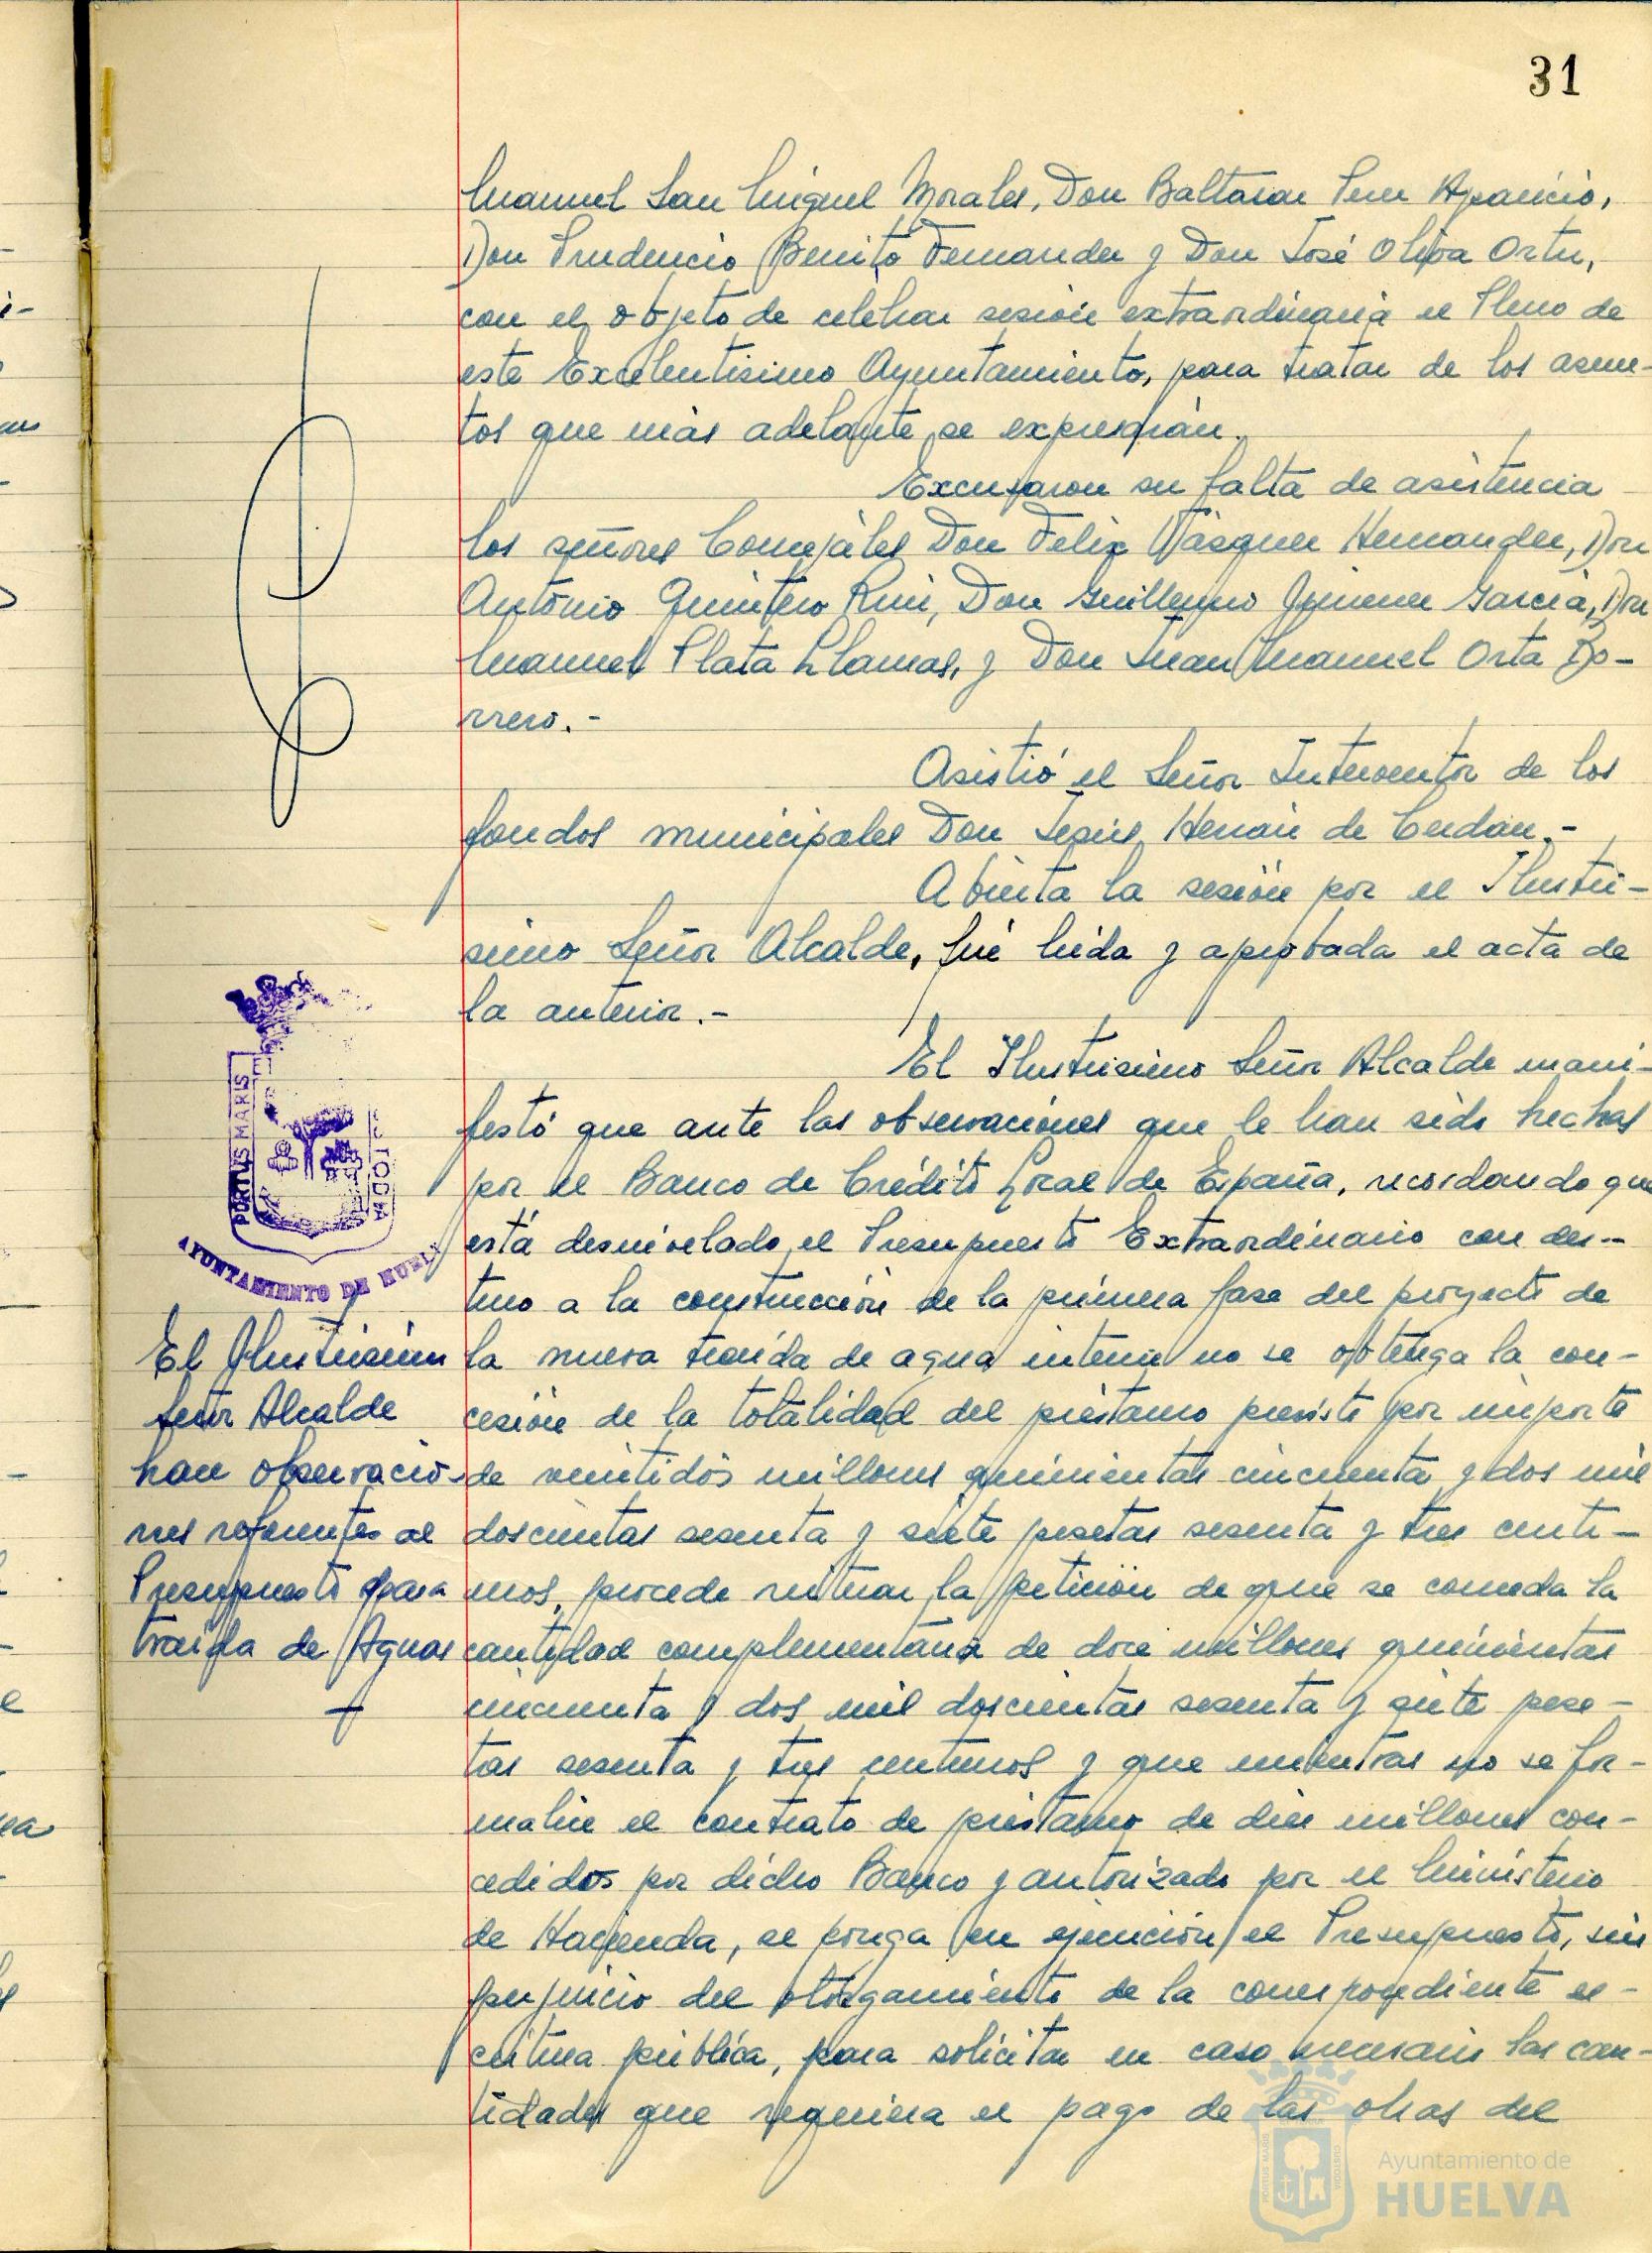 31
Manuel San Miguel Morales, Don Baltasar Pérez Aparicio,
Don Prudencio Benito Fernandez y Don José Oliva Ortiz,
con el objeto de celebrar sesión extraordinaria el Pleno de
este Excelentisimo Ayuntamiento, para tratar de los asun-
tos que más adelante se expresarán.
Excusaron su falta de asistencia
los señores Concejales Don Felix Vázquez Hernandez, Don
Antonio Quintero Ruiz, Don Guillermo Jimenez García, Don
Manuel Plata Llamas, y Don Juan Manuel Orta Bo-
rrero.-
Asistió el Señor Interventor de los
fondos municipales Don Jesús Hernán de Cerdán.-
Abierta la sesión por el Ilustri-
simo Señor Alcalde, fué leida y aprobada el acta de
la anterior.-
El Ilustrisimo Señor Alcalde mani-
festó que ante las observaciones que le han sido hechas
por el Banco de Crédito Local de España, recordando que
está desnivelado el Presupuesto Extraordinario con des-
tino a la construcción de la primera fase del proyecto de
la nueva traída de agua interin no se obtenga la con-
cesión de la totalidad del préstamo previsto por importe
de veintidós millones quinientas cincuenta y dos mil
doscientas sesenta y siete pesetas sesenta y tres centi-
mos, procede reiterar la petición de que se conceda la
cantidad complementaria de doce millones quinientas
cincuenta y dos mil doscientas sesenta y siete pese-
tas sesenta y tres centimos y que mientras no se for-
malice el contrato de préstamo de diez millones con-
cedidos por dicho Banco y autorizado por el Ministerio
de Hacienda, se ponga en ejecución el Presupuesto, sin
perjuicio del otorgamiento de la correspondiente es-
critura pública, para solicitar en caso necesario las can-
tidades que requiera el pago de las obras del
PORTUS MARIS
CUSTODIA
AYUNTAMIENTO DE HUELVA
El Ilustrisimo
Señor Alcalde
hace observacio-
nes referentes al
Presupuesto para
traída de Aguas
Ayuntamiento de
HUELVA